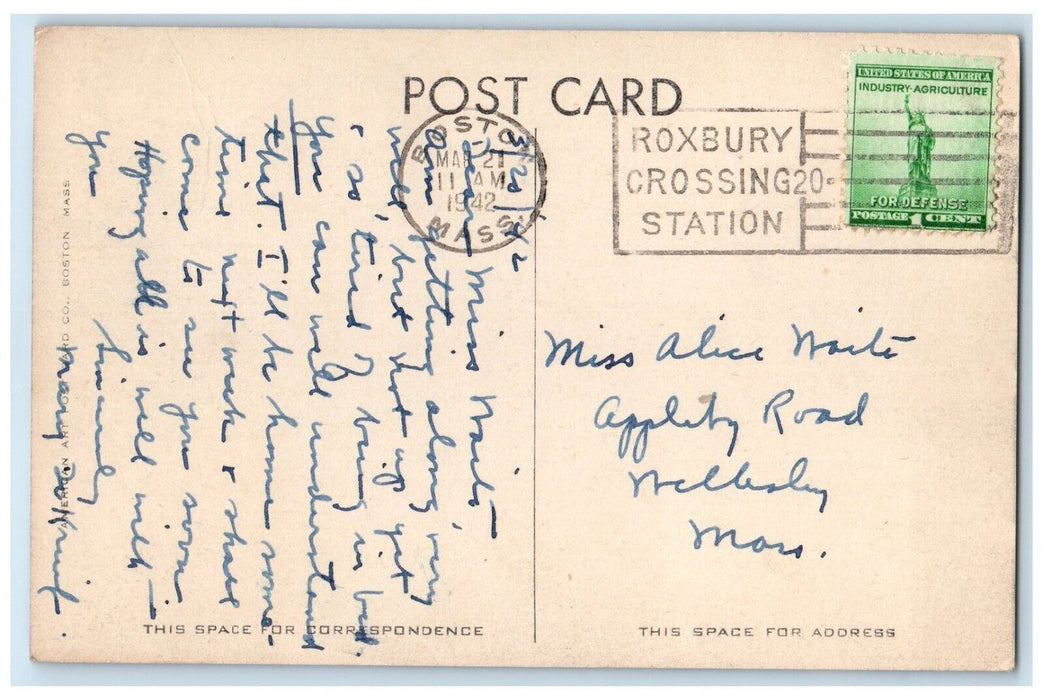 POST CARD
BOSTON
MAR 21
11 AM
1942
MASS.
ROXBURY
CROSSING 20-
STATION
UNITED STATES OF AMERICA
INDUSTRY-AGRICULTURE
FOR DEFENSE
POSTAGE 1 CENT
3/20/42
Dear Miss Waite –
Am getting along very
well, but not up yet
& so tired of being in bed.
You can well understand
that. I'll be home some-
time next week & shall
come to see you soon.
Hoping all is well with
you
Sincerely
Mary
Miss Alice Waite
Appleby Road
Wellesley
Mass.
AMERICAN ART POST CARD CO., BOSTON MASS
THIS SPACE FOR CORRESPONDENCE
THIS SPACE FOR ADDRESS